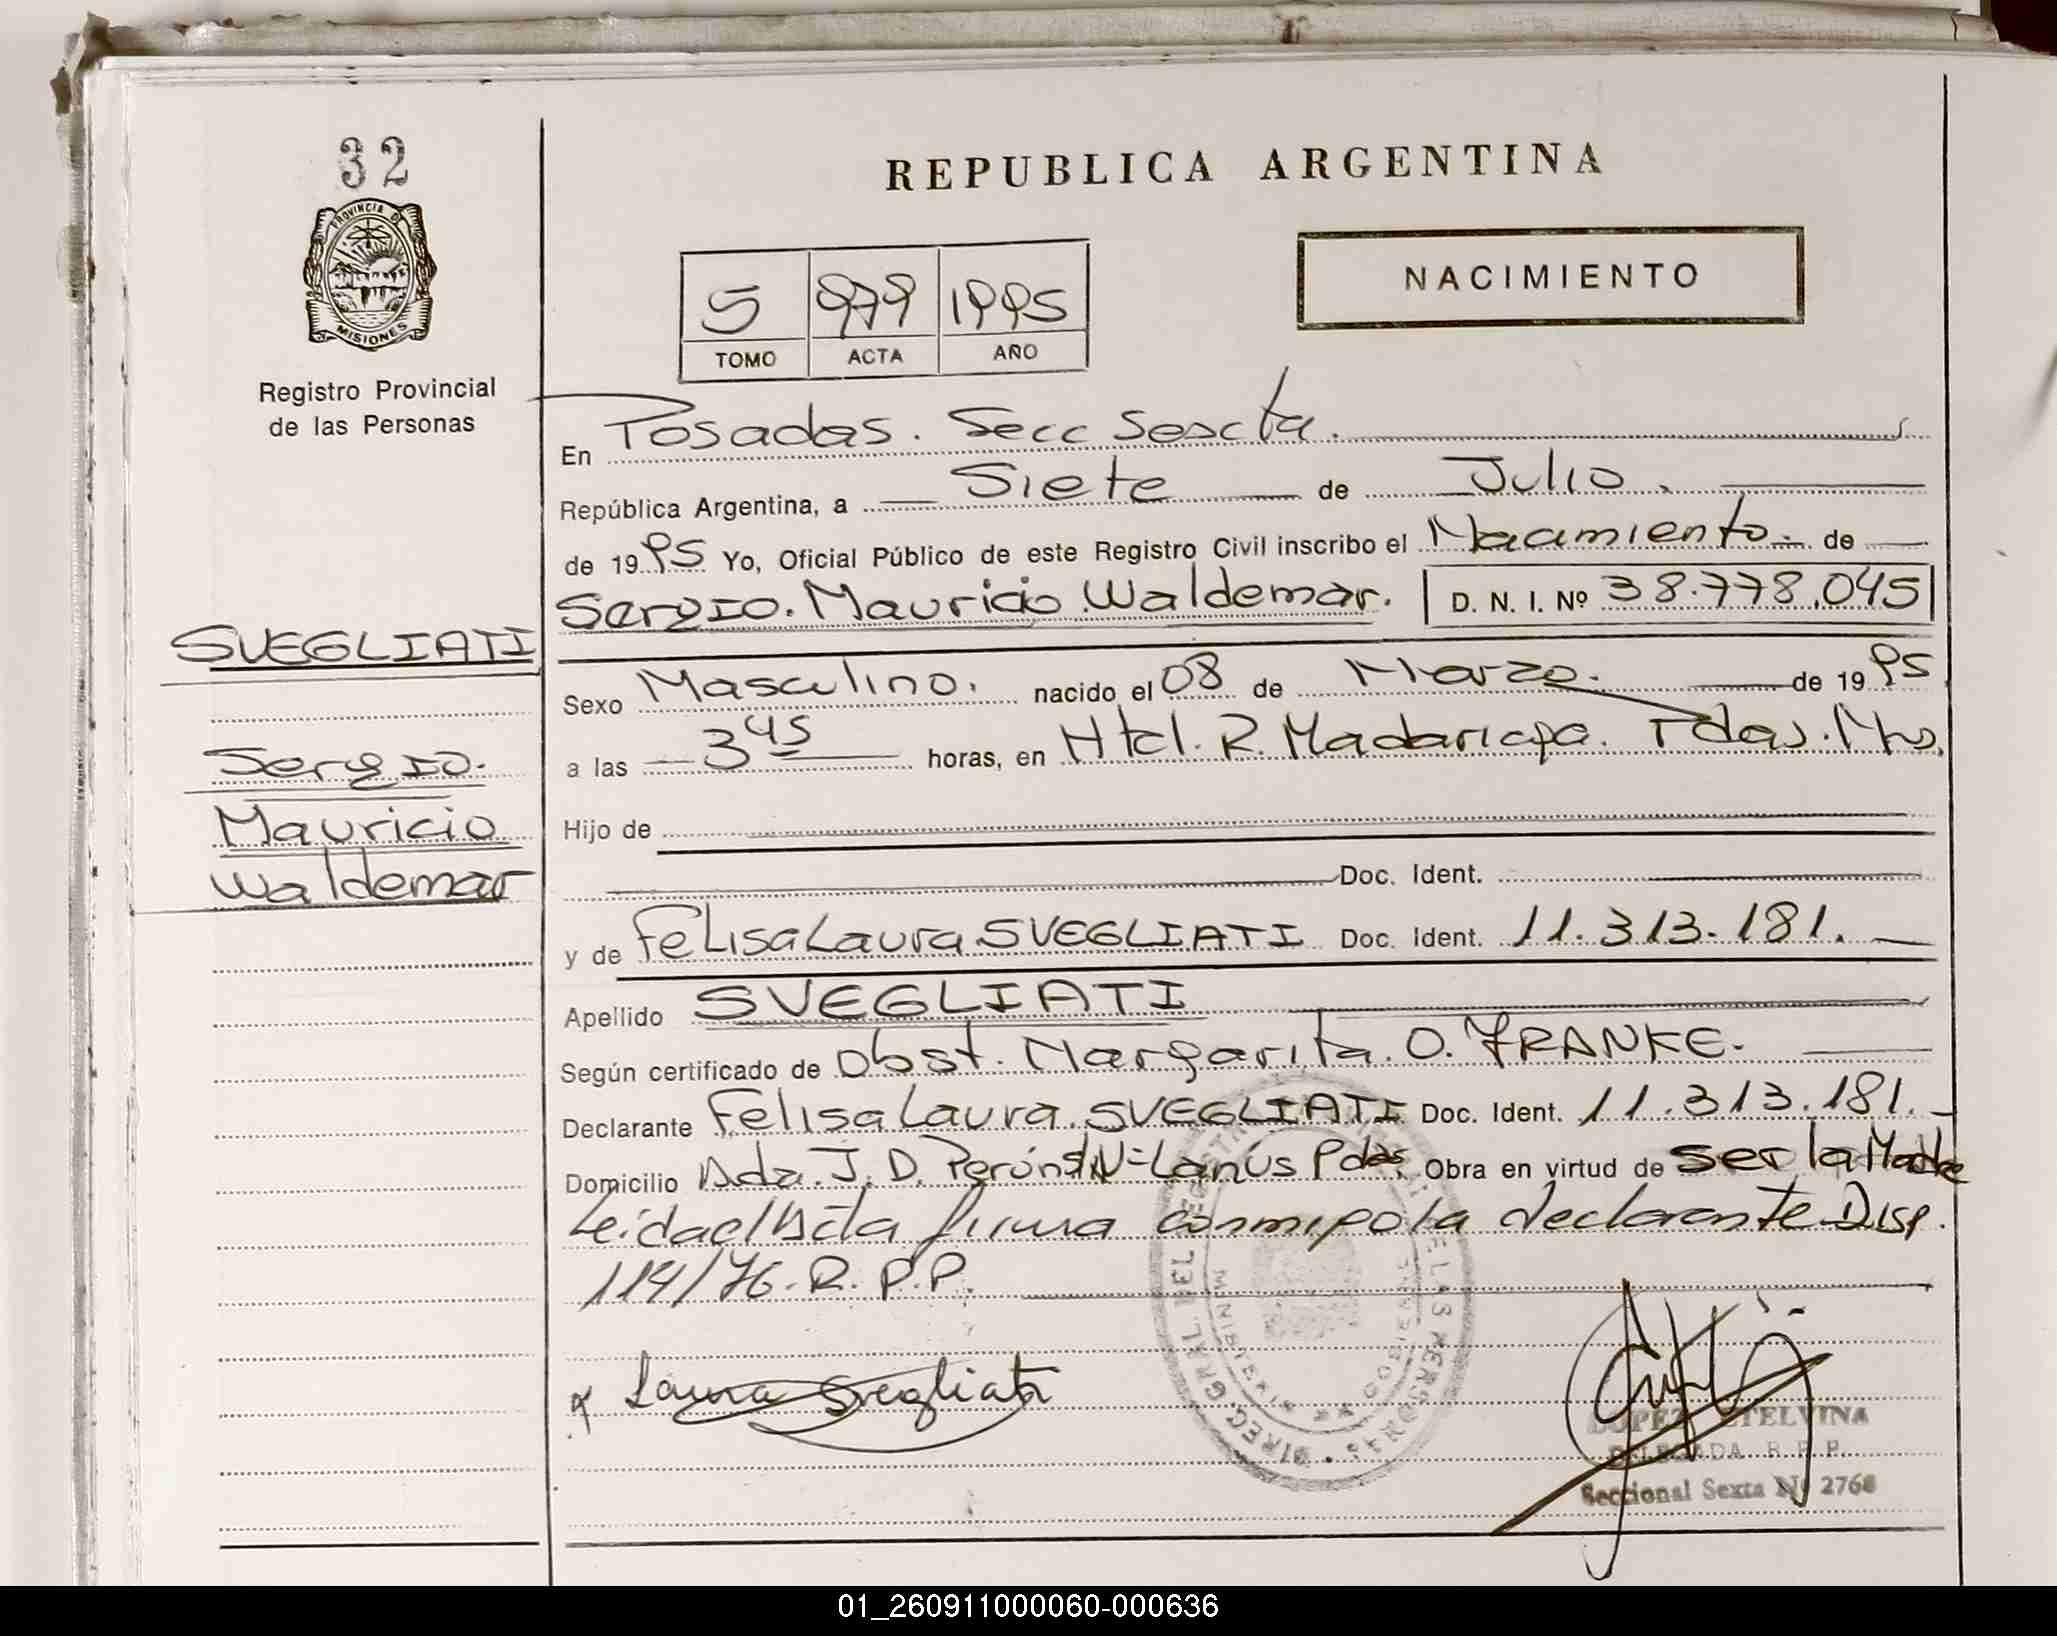 32
PROVINCIA DE
MISIONES
Registro Provincial
de las Personas
SVEGLIATI
Sergio.
Mauricio
Waldemar
REPUBLICA ARGENTINA
5 979 1995
TOMO ACTA AÑO
NACIMIENTO
En Posadas. Secc Sexta.
República Argentina, a Siete de Julio.
de 1995 Yo, Oficial Público de este Registro Civil inscribo el Nacimiento de
Sergio. Mauricio Waldemar. D. N. I. Nº 38.778.045
Sexo Masculino. nacido el 08 de Marzo. de 1995
a las 3 45 horas, en Htal. R. Madariaga. Pdas. Mns.
Hijo de
Doc. Ident.
y de Felisa Laura SVEGLIATI Doc. Ident. 11.313.181.
Apellido SVEGLIATI
Según certificado de Obst. Margarita. O. FRANKE.
Declarante Felisa Laura. SVEGLIATI Doc. Ident. 11.313.181.
Domicilio Avda. J. D. Perón S/Nº Lanús Pdas. Obra en virtud de ser la Madre
Leida el Acta firma conmigo la declarante Disp.
114/76. R. P. P.
Laura Svegliati
DIREC. GRAL. DEL REGISTRO DE LAS PERSONAS
LOPEZ ETELVINA
DELEGADA R. P. P.
Seccional Sexta Nº 2768
01_260911000060-000636